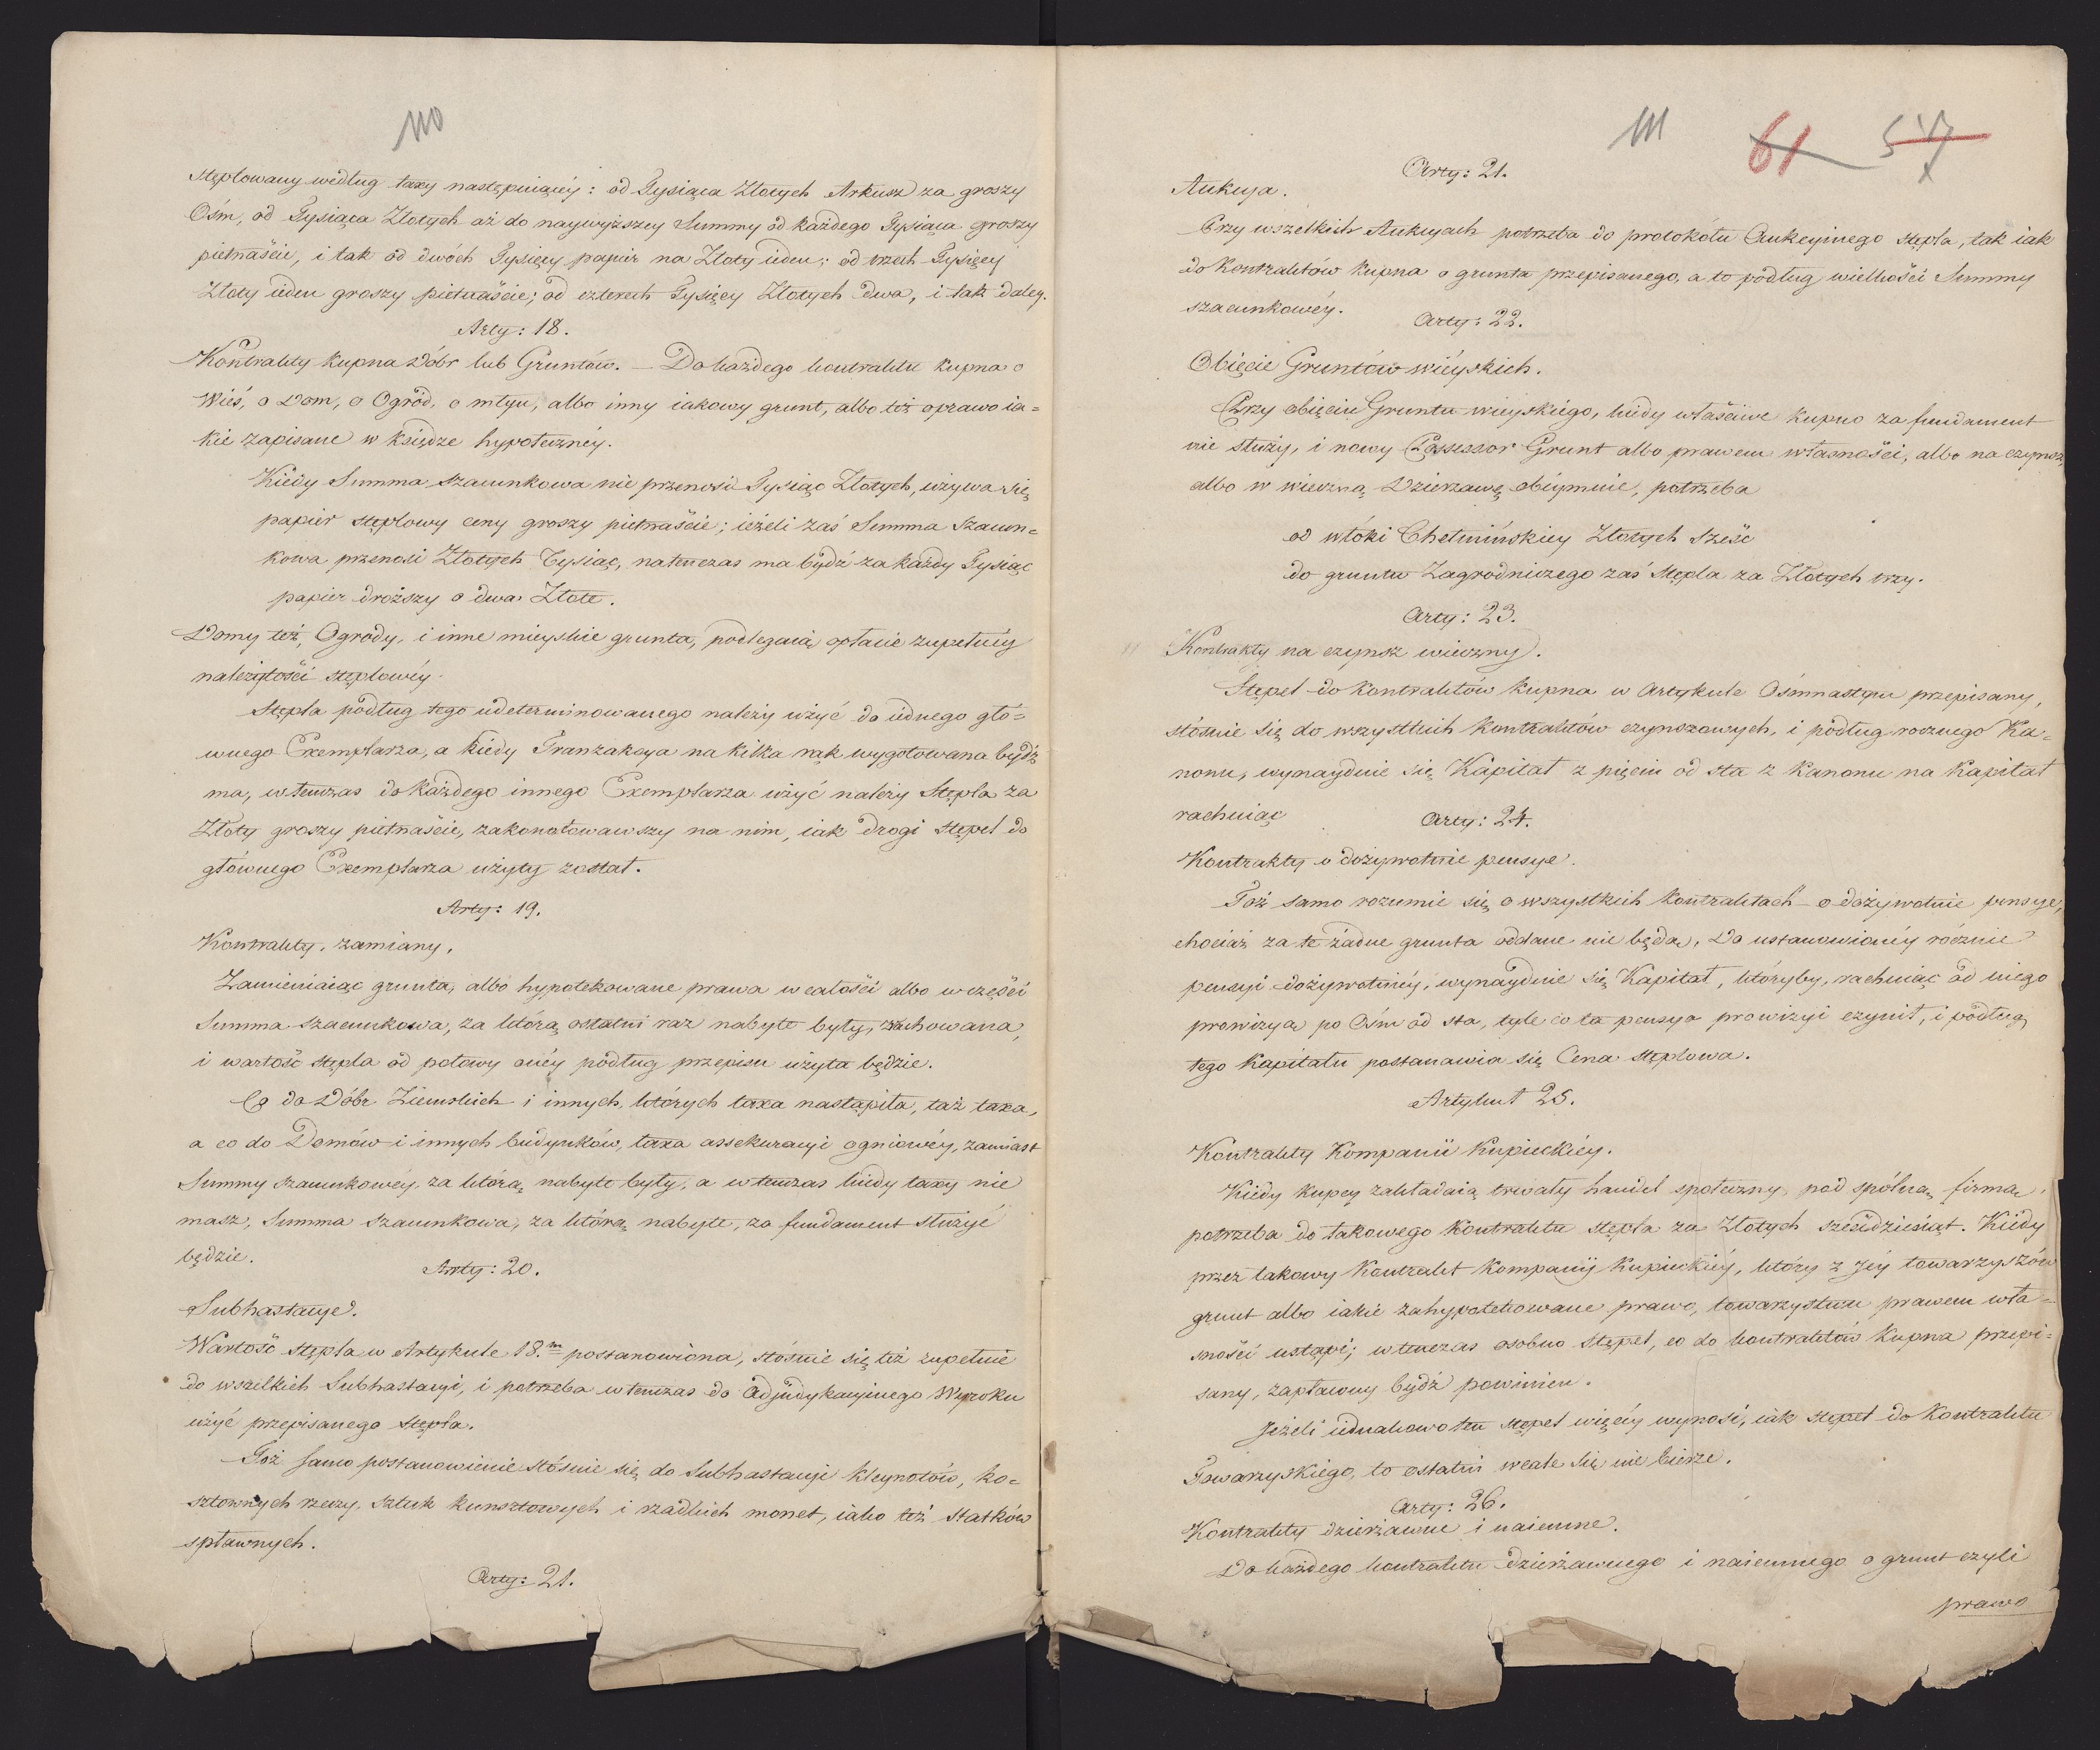 110
stęplowany według taxy następuiącéy: od Tysiąca Złotych Arkusz za groszy
Ośm, od Tysiąca Złotych aż do naywyższey Summy od każdego Tysiąca groszy
pietnaście, i tak od dwóch Tysięcy papier na Złoty ieden; od trzech Tysięcy
Złoty ieden groszy pietnaście; od czterech Tysięcy Złotych dwa, i tak daley.
Arty: 18.
Kontrakty kupna Dóbr lub Gruntów. – Do każdego kontraktu kupna o
Wieś, o Dom, o Ogród, o młyn, albo inny iakowy grunt, albo też o prawo ia=
kie zapisane w księdze hypotecznéy.
Kiedy Summa szacunkowa nie przenosi Tysiąc Złotych, używa się
papier stęplowy ceny groszy pietnaście; ieżeli zaś Summa szacun=
kowa przenosi Złotych Tysiąc, natenczas ma bydź za każdy Tysiąc
papier droższy o dwa Złote.
Domy też, Ogrody, i inne mieyskie grunta, podlegaią opłacie zupełnéy
należytości stęplowéy.
Stępla podług tego udeterminowanego należy użyć do iednego głó=
wnego Exemplarza, a kiedy Tranzakcya na kilka rąk wygotowana bydź
ma, wtenczas do każdego innego Exemplarza użyć należy Stępla za
Złoty groszy pietnaście, zakonotowawszy na nim, iak drogi stępel do
głównego Exemplarza użyty został.
Arty: 19.
Kontrakty, zamiany.
Zamieniaiąc grunta, albo hypotekowane prawa w całości albo w części
Summa szacunkowa, za którą ostatni raz nabyte były, rachowana,
i wartość stępla od połowy onéy podług przepisu użyta będzie.
Co do Dóbr Ziemskich i innych, których taxa nastąpiła, taż taxa,
a co do Domów i innych budynków, taxa assekuracyi ogniowéy, zamiast
Summy szacunkowéy, za którą nabyte były, a wtenczas kiedy taxy nie
masz, Summa szacunkowa, za którą nabyte, za fundament służyć
będzie.
Arty: 20.
Subhastacye.
Wartość stępla w Artykule 18.m postanowiona, stósuie się też zupełnie
do wszelkich Subhastacyi, i potrzeba wtenczas do adjudykacyinego Wyroku
użyć przepisanego stępla.
Toż samo postanowienie stósuie się do Subhastacyi kleynotów, ko=
sztownych rzeczy, sztuk kunsztowych i rzadkich monet, iako też statków
spławnych.
Arty: 21.
111 61 57
Arty: 21.
Aukcya.
Przy wszelkich Aukcyach potrzeba do protokółu Aukcyinego stępla, tak iak
do kontraktów kupna o grunta przepisanego, a to podług wielkości Summy
szacunkowéy.
Arty: 22.
Obięcie Gruntów wieyskich.
Przy obięciu Gruntu wieyskiego, kiedy właściwe kupno za fundament
nie służy, i nowy Possessor Grunt albo prawem własności, albo na czynsz,
albo w wieczną Dzierzawę obeymuie, potrzeba
od włóki Chełmińskiey Złotych sześć
do gruntu Zagrodniczego zaś stępla za Złotych trzy.
Arty: 23.
Kontrakty na czynsz wieczny.
Stępel do kontraktów kupna w Artykule Ośmnastym przepisany,
stósuie się do wszystkich kontraktów czynszowych, i podług rocznego Ka=
nonu, wynaydnie się Kapitał z pięciu od sta z kanonu na kapitał
rachuiąc
Arty: 24.
Kontrakty o dożywotnie pensye.
Toż samo rozumie się o wszystkich kontraktach o dożywotnie pensye,
chociaż za te żadne grunta oddane nie będą. Do ustanowionéy rócznie
pensyi dożywotniéy, wynaydnie się Kapitał, któryby, rachuiąc od niego
prowizyą po Ośm od sta, tyle co ta pensya prowizyi czynił, i podług
tego kapitału postanawia się Cena stęplowa.
Artykuł 25.
Kontrakty Kompanii kupieckiéy.
Kiedy kupcy zakładaią trwały handel społeczny pod spólną firmą,
potrzeba do takowego kontraktu stępla za Złotych sześćdziesiąt. Kiedy
przez takowy kontrakt kompanij kupieckiéy, który z Jéy towarzyszów
grunt albo iakie zahypotekowane prawo, towarzystwu prawem wła=
sności ustąpi; wtenczas osobno stępel, co do kontraktów kupna przepi=
sany, zapłacony bydź powinien.
Jeżeli iednakowo ten stępel więcéy wynosi, iak stępel do kontraktu
Towarzyskiego, to ostatni wcale się nie bierze.
Arty: 26.
Kontrakty dzierżawne i naiemne.
Do każdego kontraktu dzierżawnego i naiemnego o grunt czyli
prawo